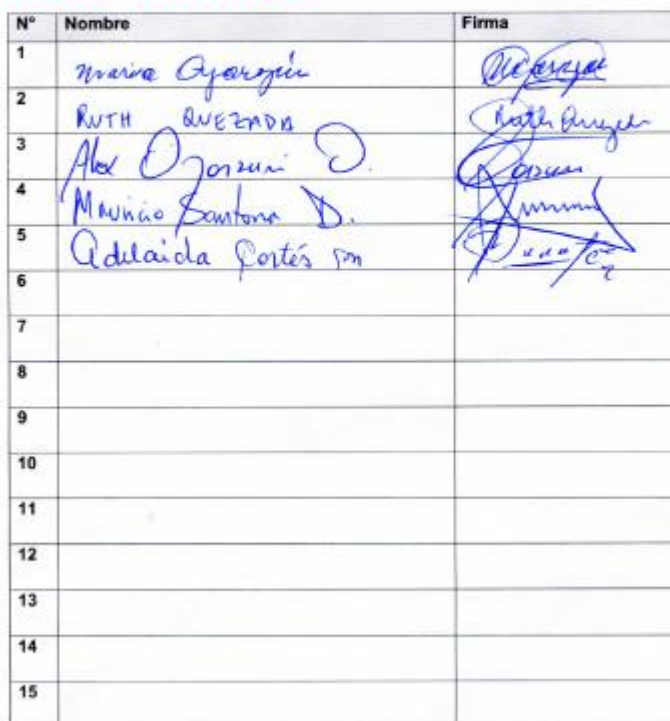 N° Nombre Firma
1 Maria Oyarzún
2 RUTH QUEZADA Ruth Quezada
3 Alex O.
4 Mauricio Santana D.
5 Adelaida Cortés
6
7
8
9
10
11
12
13
14
15